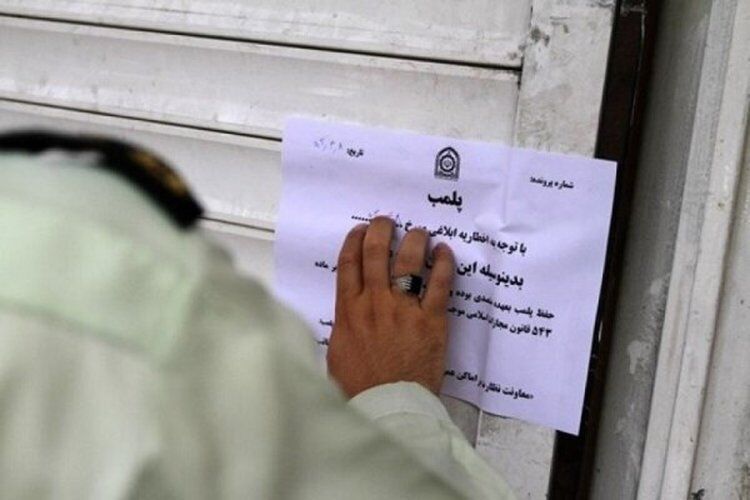 شماره پرونده:
تاریخ:
پلمب
با توجه به اخطاریه ابلاغی مورخ
بدینوسیله این
بر ماده
حفظ پلمب بعهده متصدی بوده و
۵۴۳ قانون مجازات اسلامی موجب
«معاونت نظارت بر اماکن عمو